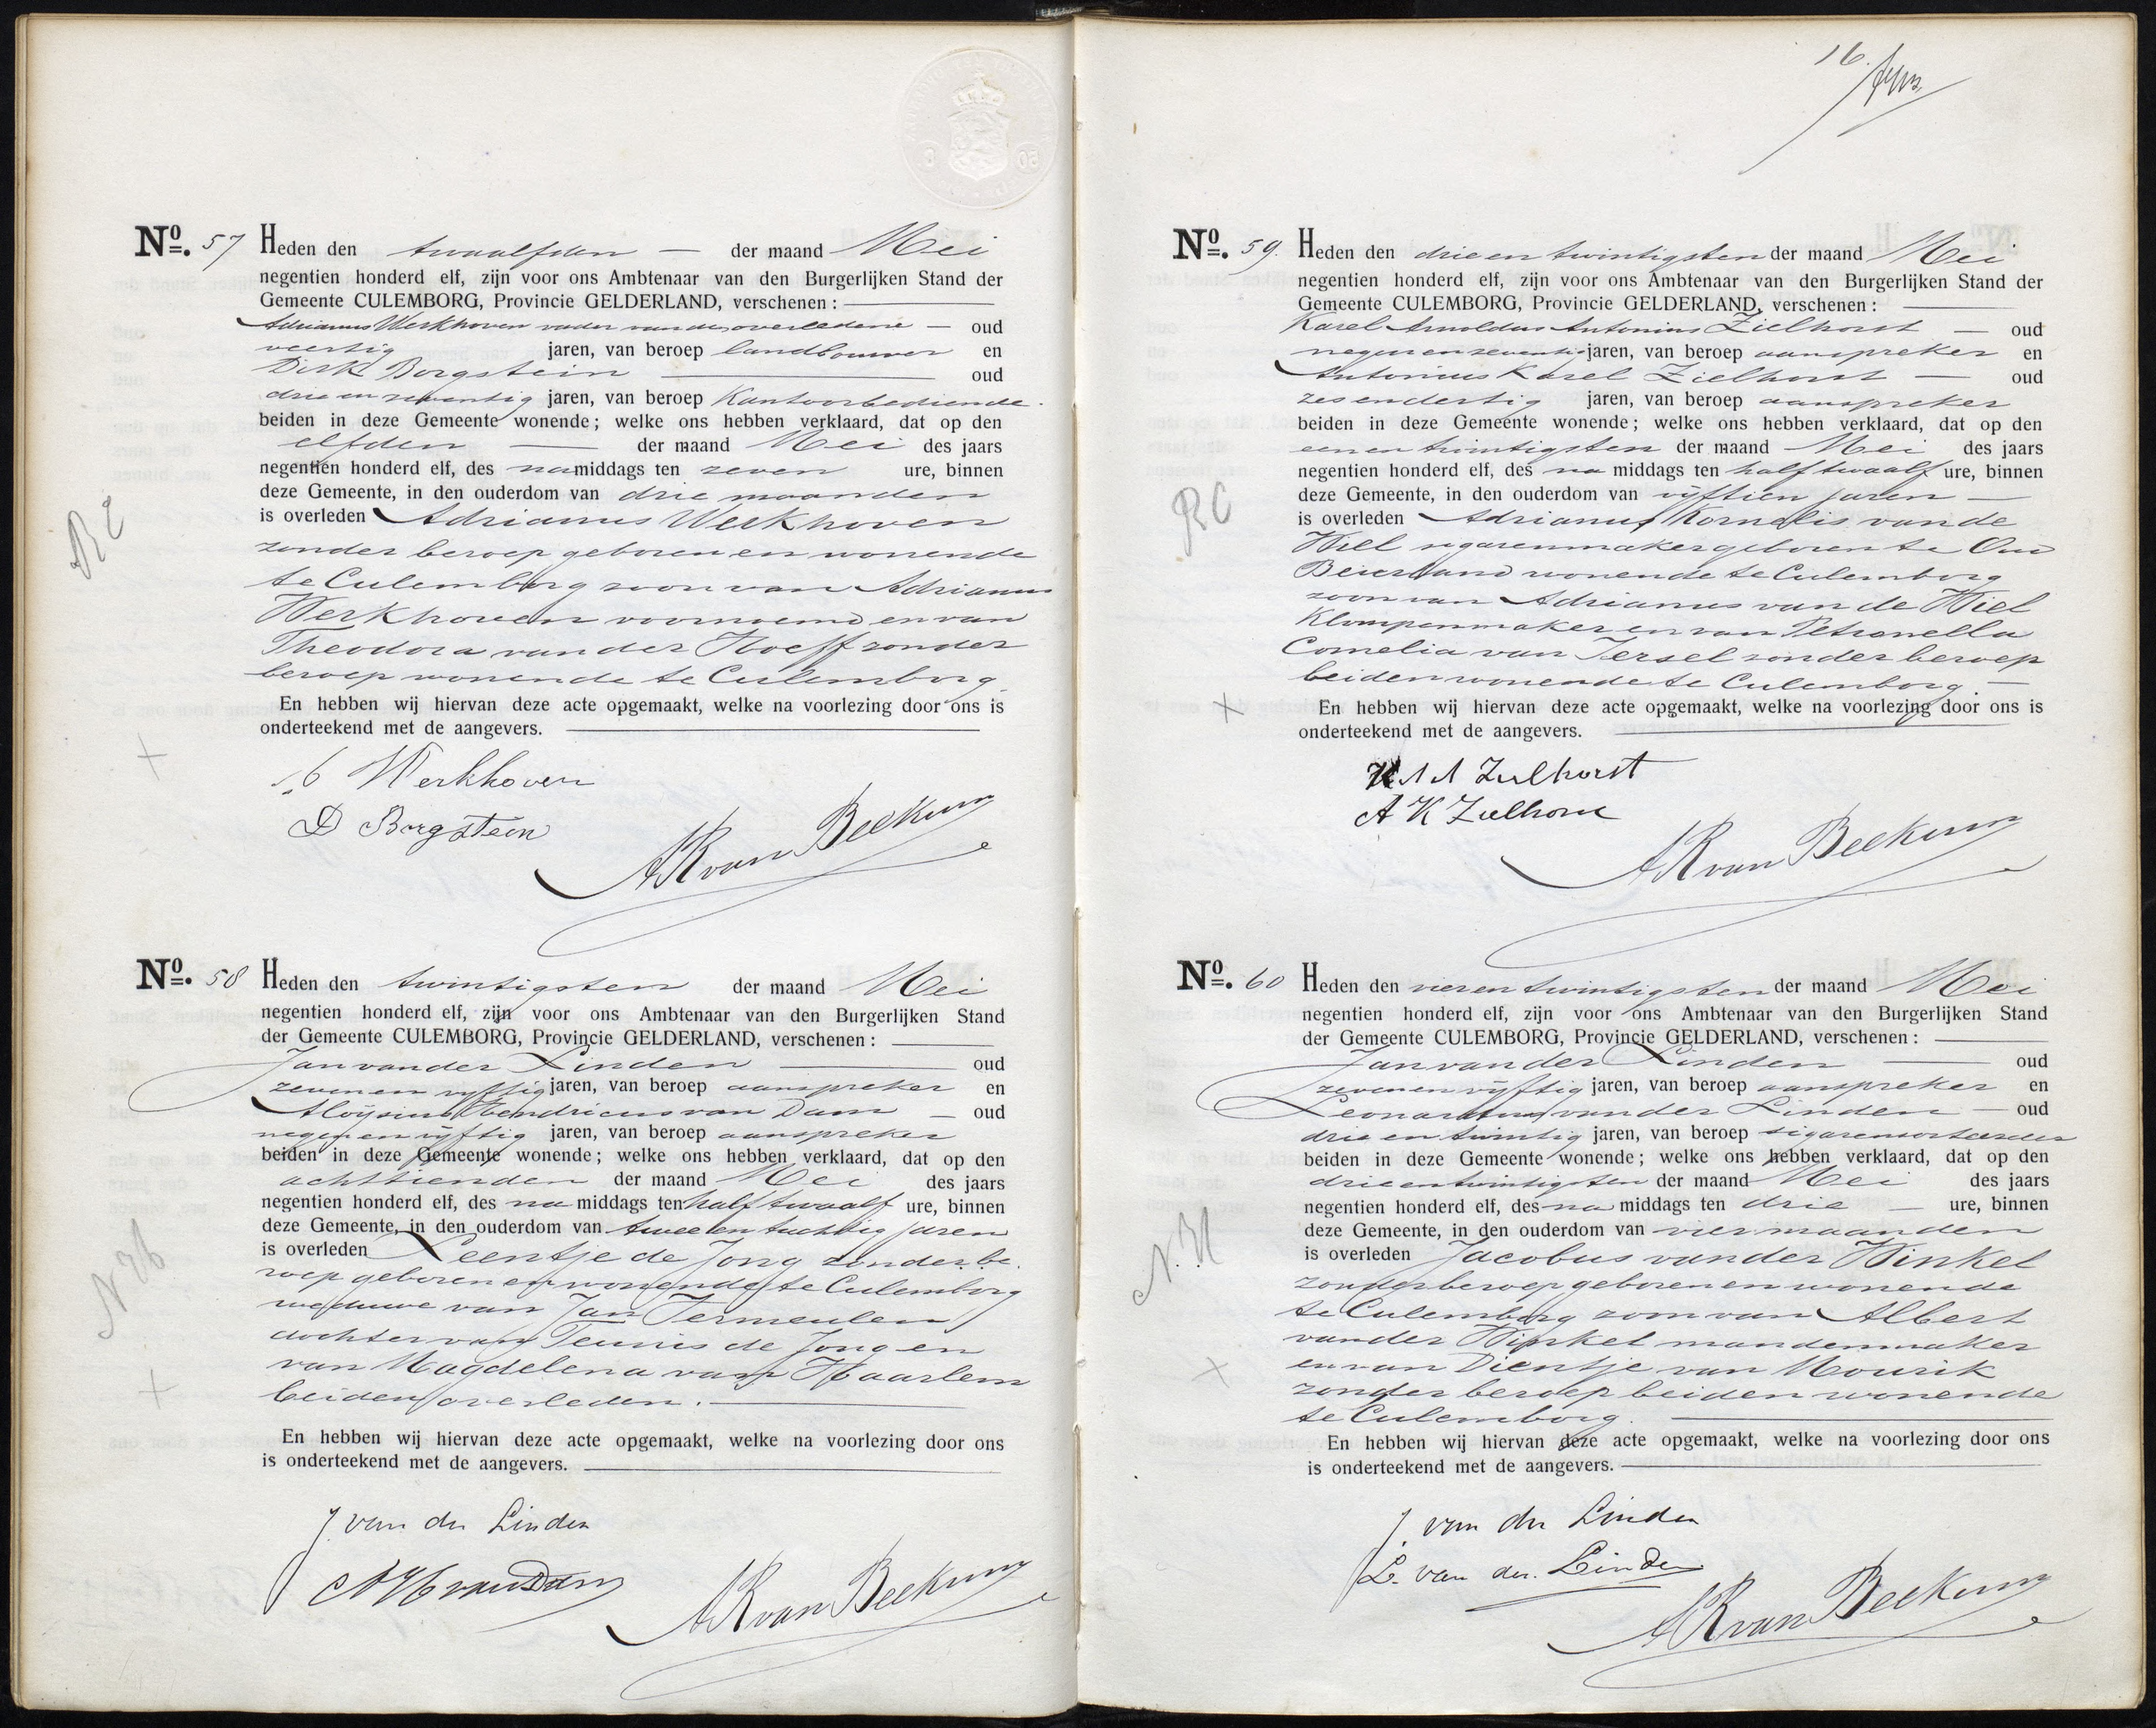 No. 57 Heden den twaalfden — der maand Mei
negentien honderd elf, zijn voor ons Ambtenaar van den Burgerlijken Stand der
Gemeente CULEMBORG, Provincie GELDERLAND, verschenen :
Adrianus Werkhoven vader van den overledene — oud
veertig jaren, van beroep landbouwer en
Dirk Borgstein oud
drie en zeventig jaren, van beroep Kantoorbediende.
beiden in deze Gemeente wonende; welke ons hebben verklaard, dat op den
elfden — der maand Mei des jaars
negentien honderd elf, des namiddags ten zeven ure, binnen
deze Gemeente, in den ouderdom van drie maanden
is overleden Adrianus Werkhoven
zonder beroep geboren en wonende
te Culemborg zoon van Adrianus
Werkhoven voornoemd en van
Theodora van der Hoeff zonder
beroep wonende te Culemborg
En hebben wij hiervan deze acte opgemaakt, welke na voorlezing door ons is
onderteekend met de aangevers.
RC
Werkhoven
D Borgstein
AR van Beekum
No. 58 Heden den twintigsten der maand Mei
negentien honderd elf, zijn voor ons Ambtenaar van den Burgerlijken Stand
der Gemeente CULEMBORG, Provincie GELDERLAND, verschenen :
Jan van der Linden oud
zeven en vyftig jaren, van beroep aanspreker en
Aloÿsius Hendricus van Dam — oud
negen en vyftig jaren, van beroep aanspreker
beiden in deze Gemeente wonende; welke ons hebben verklaard, dat op den
achttienden der maand Mei des jaars
negentien honderd elf, des na middags ten half twaalf ure, binnen
deze Gemeente, in den ouderdom van twee en tachtig jaren
is overleden Leentje de Jong zonder be-
roep geboren en wonende te Culemborg
weduwe van Jan Termeulen
dochter van Teunis de Jong en
van Magdelena van Haarlem
beiden overleden.
En hebben wij hiervan deze acte opgemaakt, welke na voorlezing door ons
is onderteekend met de aangevers.
J van der Linden
AH van Dam
AR van Beekum
16.
No. 59. Heden den drie en twintigsten der maand Mei
negentien honderd elf, zijn voor ons Ambtenaar van den Burgerlijken Stand der
Gemeente CULEMBORG, Provincie GELDERLAND, verschenen :
Karel Arnoldus Antonius Zielhorst — oud
negen en zeventig jaren, van beroep aanspreker en
Antonius Karel Zielhorst — oud
zes en dertig jaren, van beroep aanspreker
beiden in deze Gemeente wonende; welke ons hebben verklaard, dat op den
een en twintigsten der maand Mei des jaars
negentien honderd elf, des na middags ten half twaalf ure, binnen
deze Gemeente, in den ouderdom van vyftien jaren —
is overleden Adrianus Kornelis van de
Wiel sigarenmaker geboren te Oud
Beierland wonende te Culemborg
zoon van Adrianus van de Wiel
Klompenmaker en van Petronella
Cornelia van Iersel zonder beroep
beiden wonende te Culemborg. —
En hebben wij hiervan deze acte opgemaakt, welke na voorlezing door ons is
onderteekend met de aangevers.
RC
K A A Zielhorst
A K Zielhorst
AR van Beekum
No. 60 Heden den vier en twintigsten der maand Mei
negentien honderd elf, zijn voor ons Ambtenaar van den Burgerlijken Stand
der Gemeente CULEMBORG, Provincie GELDERLAND, verschenen :
Jan van der Linden oud
zeven en vyftig jaren, van beroep aanspreker en
Leonardus van der Linden — oud
drie en twintig jaren, van beroep sigarensorteerder
beiden in deze Gemeente wonende; welke ons hebben verklaard, dat op den
drie en twintigsten der maand Mei des jaars
negentien honderd elf, des na middags ten drie — ure, binnen
deze Gemeente, in den ouderdom van vier maanden
is overleden Jacobus van der Winkel
zonder beroep geboren en wonende
te Culemborg zoon van Albert
van der Winkel mandenmaker
en van Dientje van Mourik
zonder beroep beiden wonende
te Culemborg.
En hebben wij hiervan deze acte opgemaakt, welke na voorlezing door ons
is onderteekend met de aangevers.
J. van der Linden
L. van der Linden
AR van Beekum